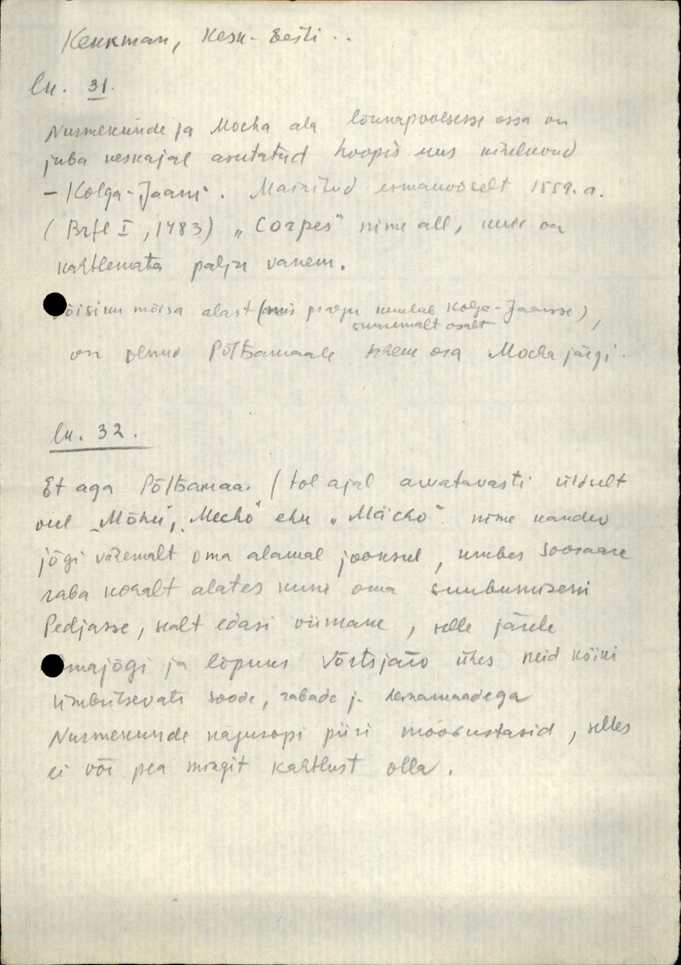 Kenkman, Kesk-Eesti ..
lk. 31.
Nurmekunde ja Mocha ala lõunapoolsesse ossa on
juba keskajal asutatud hoopis uus kihelkond
– Kolga-Jaani. Mainitud esmakordselt 1559. a.
(Brfl I, 1483) „Corpes" nime all, kuid on
kahtlemata palju vanem.
õisiku mõisa alast (mis praegu kuulub Kolga-Jaanisse),
suuremalt osalt
on olnud Põltsamaale osa Mocha järgi.
lk. 32.
Et aga Põltsamaa (tol ajal arvatavasti üldiselt
veel „Mõhu", „Mecho" ehk „Mächo" nime kandev
jõgi vähemalt oma alamal jooksul, umbes Soosaare
raba kohalt alates kuni oma suubumiseni
Pedjasse, sealt edasi viimane, selle järele
Emajõgi ja lõpuks Võrtsjärv ühes neid kõiki
ümbritsevate soode, rabade j. heinamaadega
Nurmekunde kagusopi piiri moodustasid, selles
ei või pea mingit kahtlust olla.